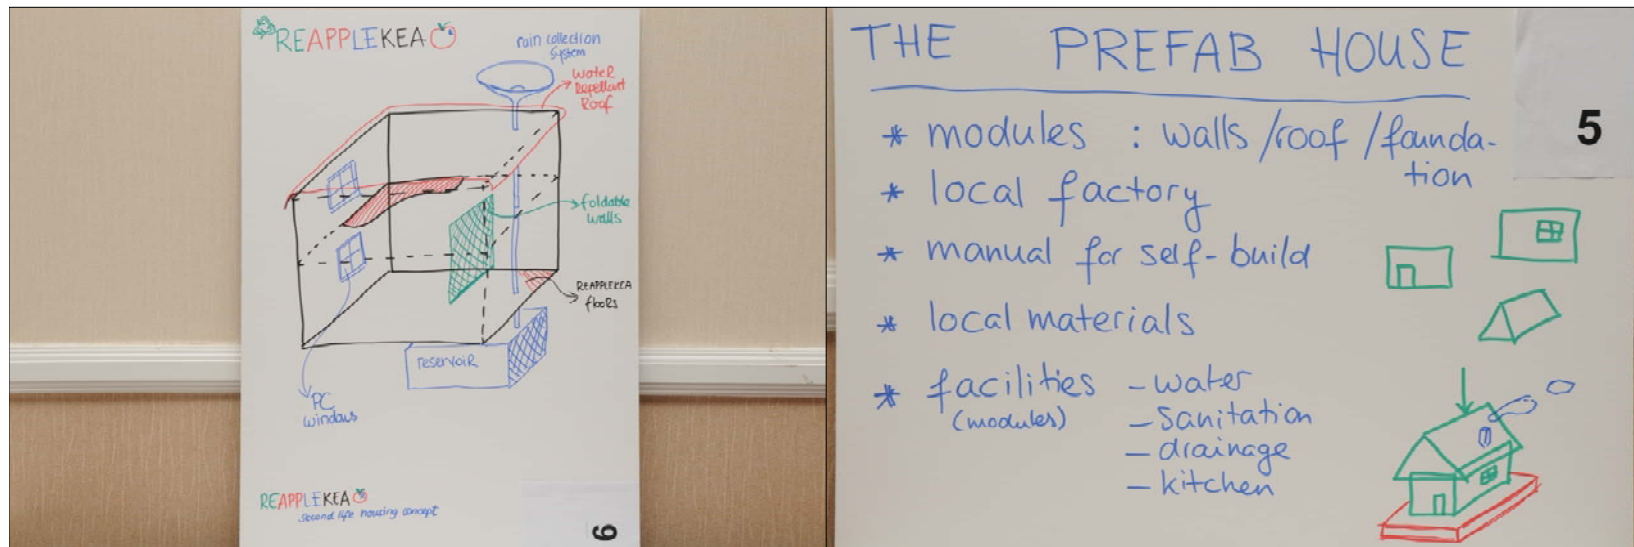 REAPPLEKEA
rain collection
System
Water
Repellant
Roof
foldable
walls
REAPPLEKEA
floors
reservoir
PC
windows
REAPPLEKEA
Second life housing concept
6
THE PREFAB HOUSE
* modules : walls/roof/founda-
tion
* local factory
* manual for self-build
* local materials
* facilities - water
(modules) - sanitation
- drainage
- kitchen
5